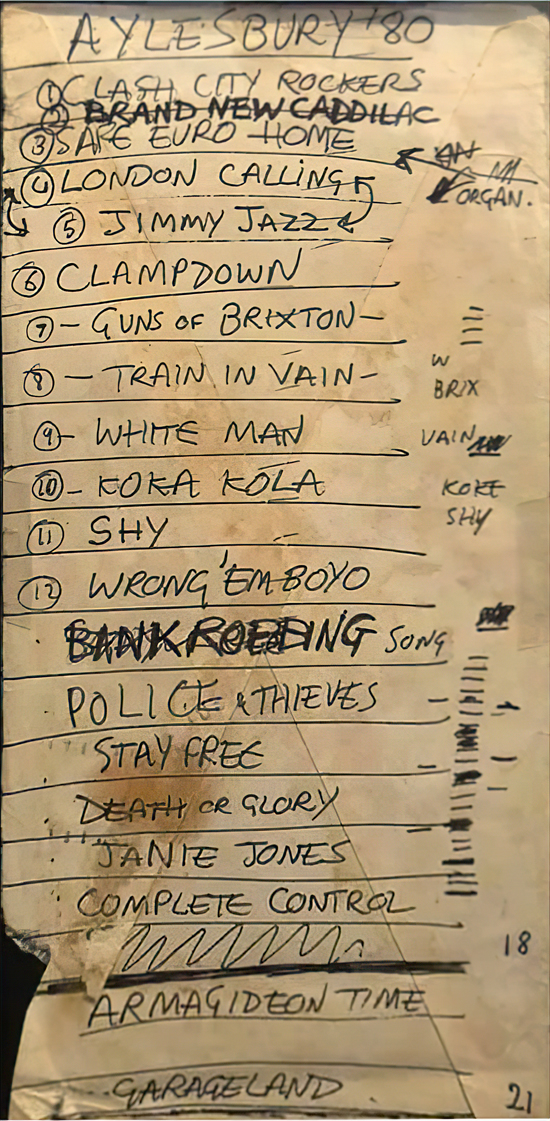 AYLESBURY '80
① CLASH CITY ROCKERS
② BRAND NEW CADDILAC
③ SAFE EURO HOME
④ LONDON CALLING
ORGAN.
⑤ JIMMY JAZZ
⑥ CLAMPDOWN
⑦ - GUNS OF BRIXTON -
⑧ - TRAIN IN VAIN -
W
BRIX
⑨ - WHITE MAN
VAIN
⑩ - KOKA KOLA
KOKE
SHY
⑪ SHY
⑫ WRONG 'EM BOYO
BANK ROBBING SONG
POLICE & THIEVES
STAY FREE
DEATH OR GLORY
JANIE JONES
COMPLETE CONTROL
18
ARMAGIDEON TIME
GARAGELAND
21